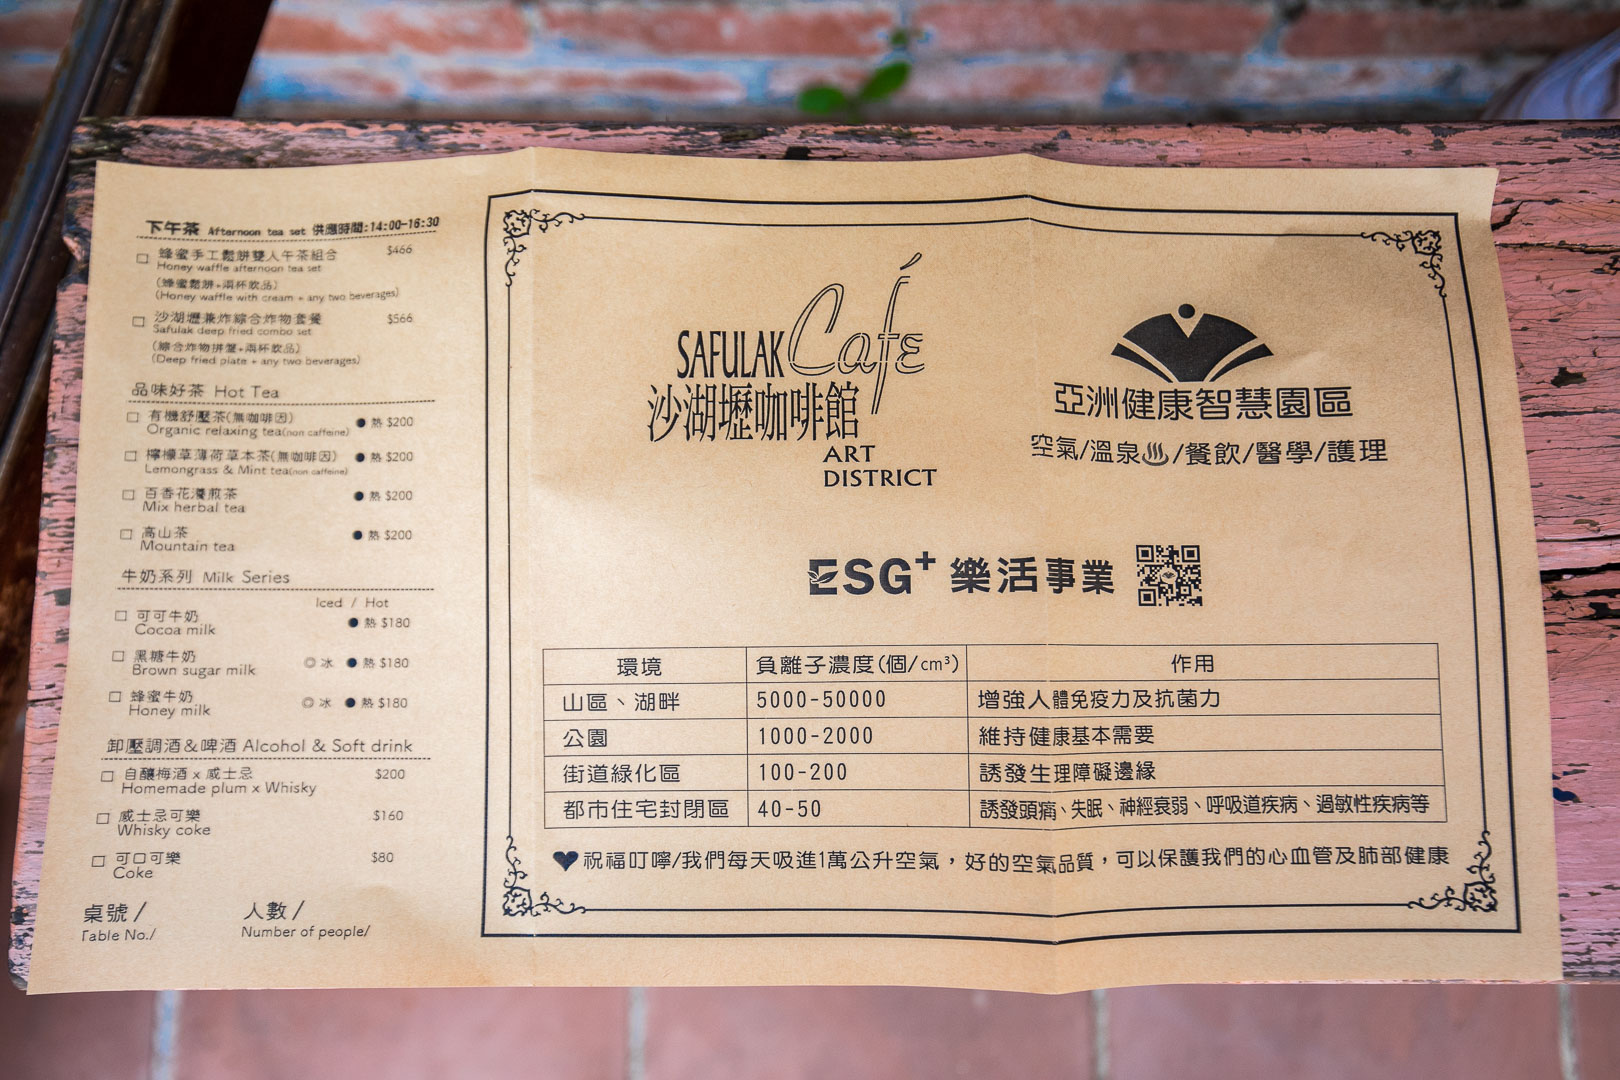 下午茶 Afternoon tea set 供應時間:14:00-16:30
□ 蜂蜜手工鬆餅雙人午茶組合 $466
Honey waffle afternoon tea set
(蜂蜜鬆餅+兩杯飲品)
(Honey waffle with cream + any two beverages)
□ 沙湖壢兼炸綜合炸物套餐 $566
Safulak deep fried combo set
(綜合炸物拼盤+兩杯飲品)
(Deep fried plate + any two beverages)
品味好茶 Hot Tea
□ 有機舒壓茶(無咖啡因) ●熱 $200
Organic relaxing tea(non caffeine)
□ 檸檬草薄荷草本茶(無咖啡因) ●熱 $200
Lemongrass & Mint tea(non caffeine)
□ 百香花漢煎茶 ●熱 $200
Mix herbal tea
□ 高山茶 ●熱 $200
Mountain tea
牛奶系列 Milk Series
Iced / Hot
□ 可可牛奶 ●熱 $180
Cocoa milk
□ 黑糖牛奶 ◎冰 ●熱 $180
Brown sugar milk
□ 蜂蜜牛奶 ◎冰 ●熱 $180
Honey milk
卸壓調酒&啤酒 Alcohol & Soft drink
□ 自釀梅酒 x 威士忌 $200
Homemade plum x Whisky
□ 威士忌可樂 $160
Whisky coke
□ 可口可樂 $80
Coke
桌號/ 人數/
Table No./ Number of people/
SAFULAK Café
沙湖壢咖啡館
ART
DISTRICT
亞洲健康智慧園區
空氣/溫泉♨/餐飲/醫學/護理
ESG+ 樂活事業
環境 負離子濃度(個/cm³) 作用
山區、湖畔 5000-50000 增強人體免疫力及抗菌力
公園 1000-2000 維持健康基本需要
街道綠化區 100-200 誘發生理障礙邊緣
都市住宅封閉區 40-50 誘發頭痛、失眠、神經衰弱、呼吸道疾病、過敏性疾病等
♥祝福叮嚀/我們每天吸進1萬公升空氣，好的空氣品質，可以保護我們的心血管及肺部健康